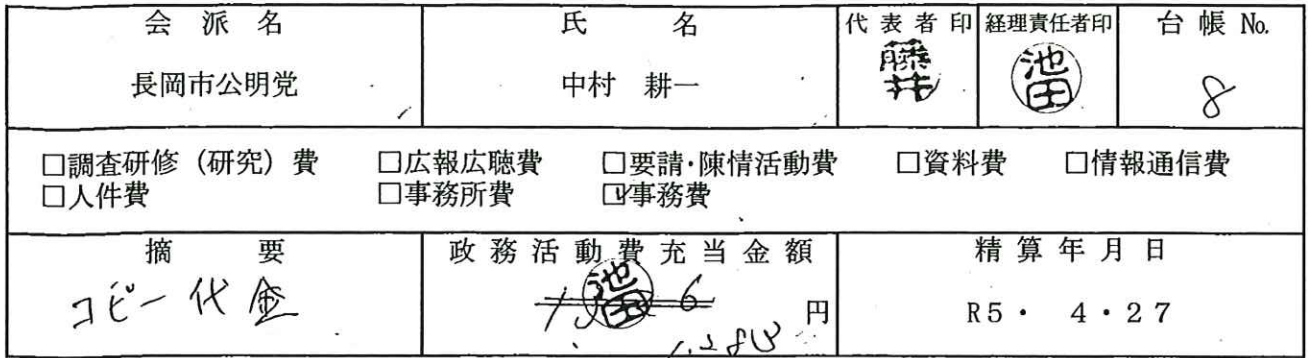 会派名 氏名 代表者印 経理責任者印 台帳No.
長岡市公明党 中村 耕一 藤井 池田 8
□調査研修（研究）費 □広報広聴費 □要請・陳情活動費 □資料費 □情報通信費
□人件費 □事務所費 ☑事務費
摘要 政務活動費充当金額 精算年月日
コピー代金 池田 円 R5・ 4・27